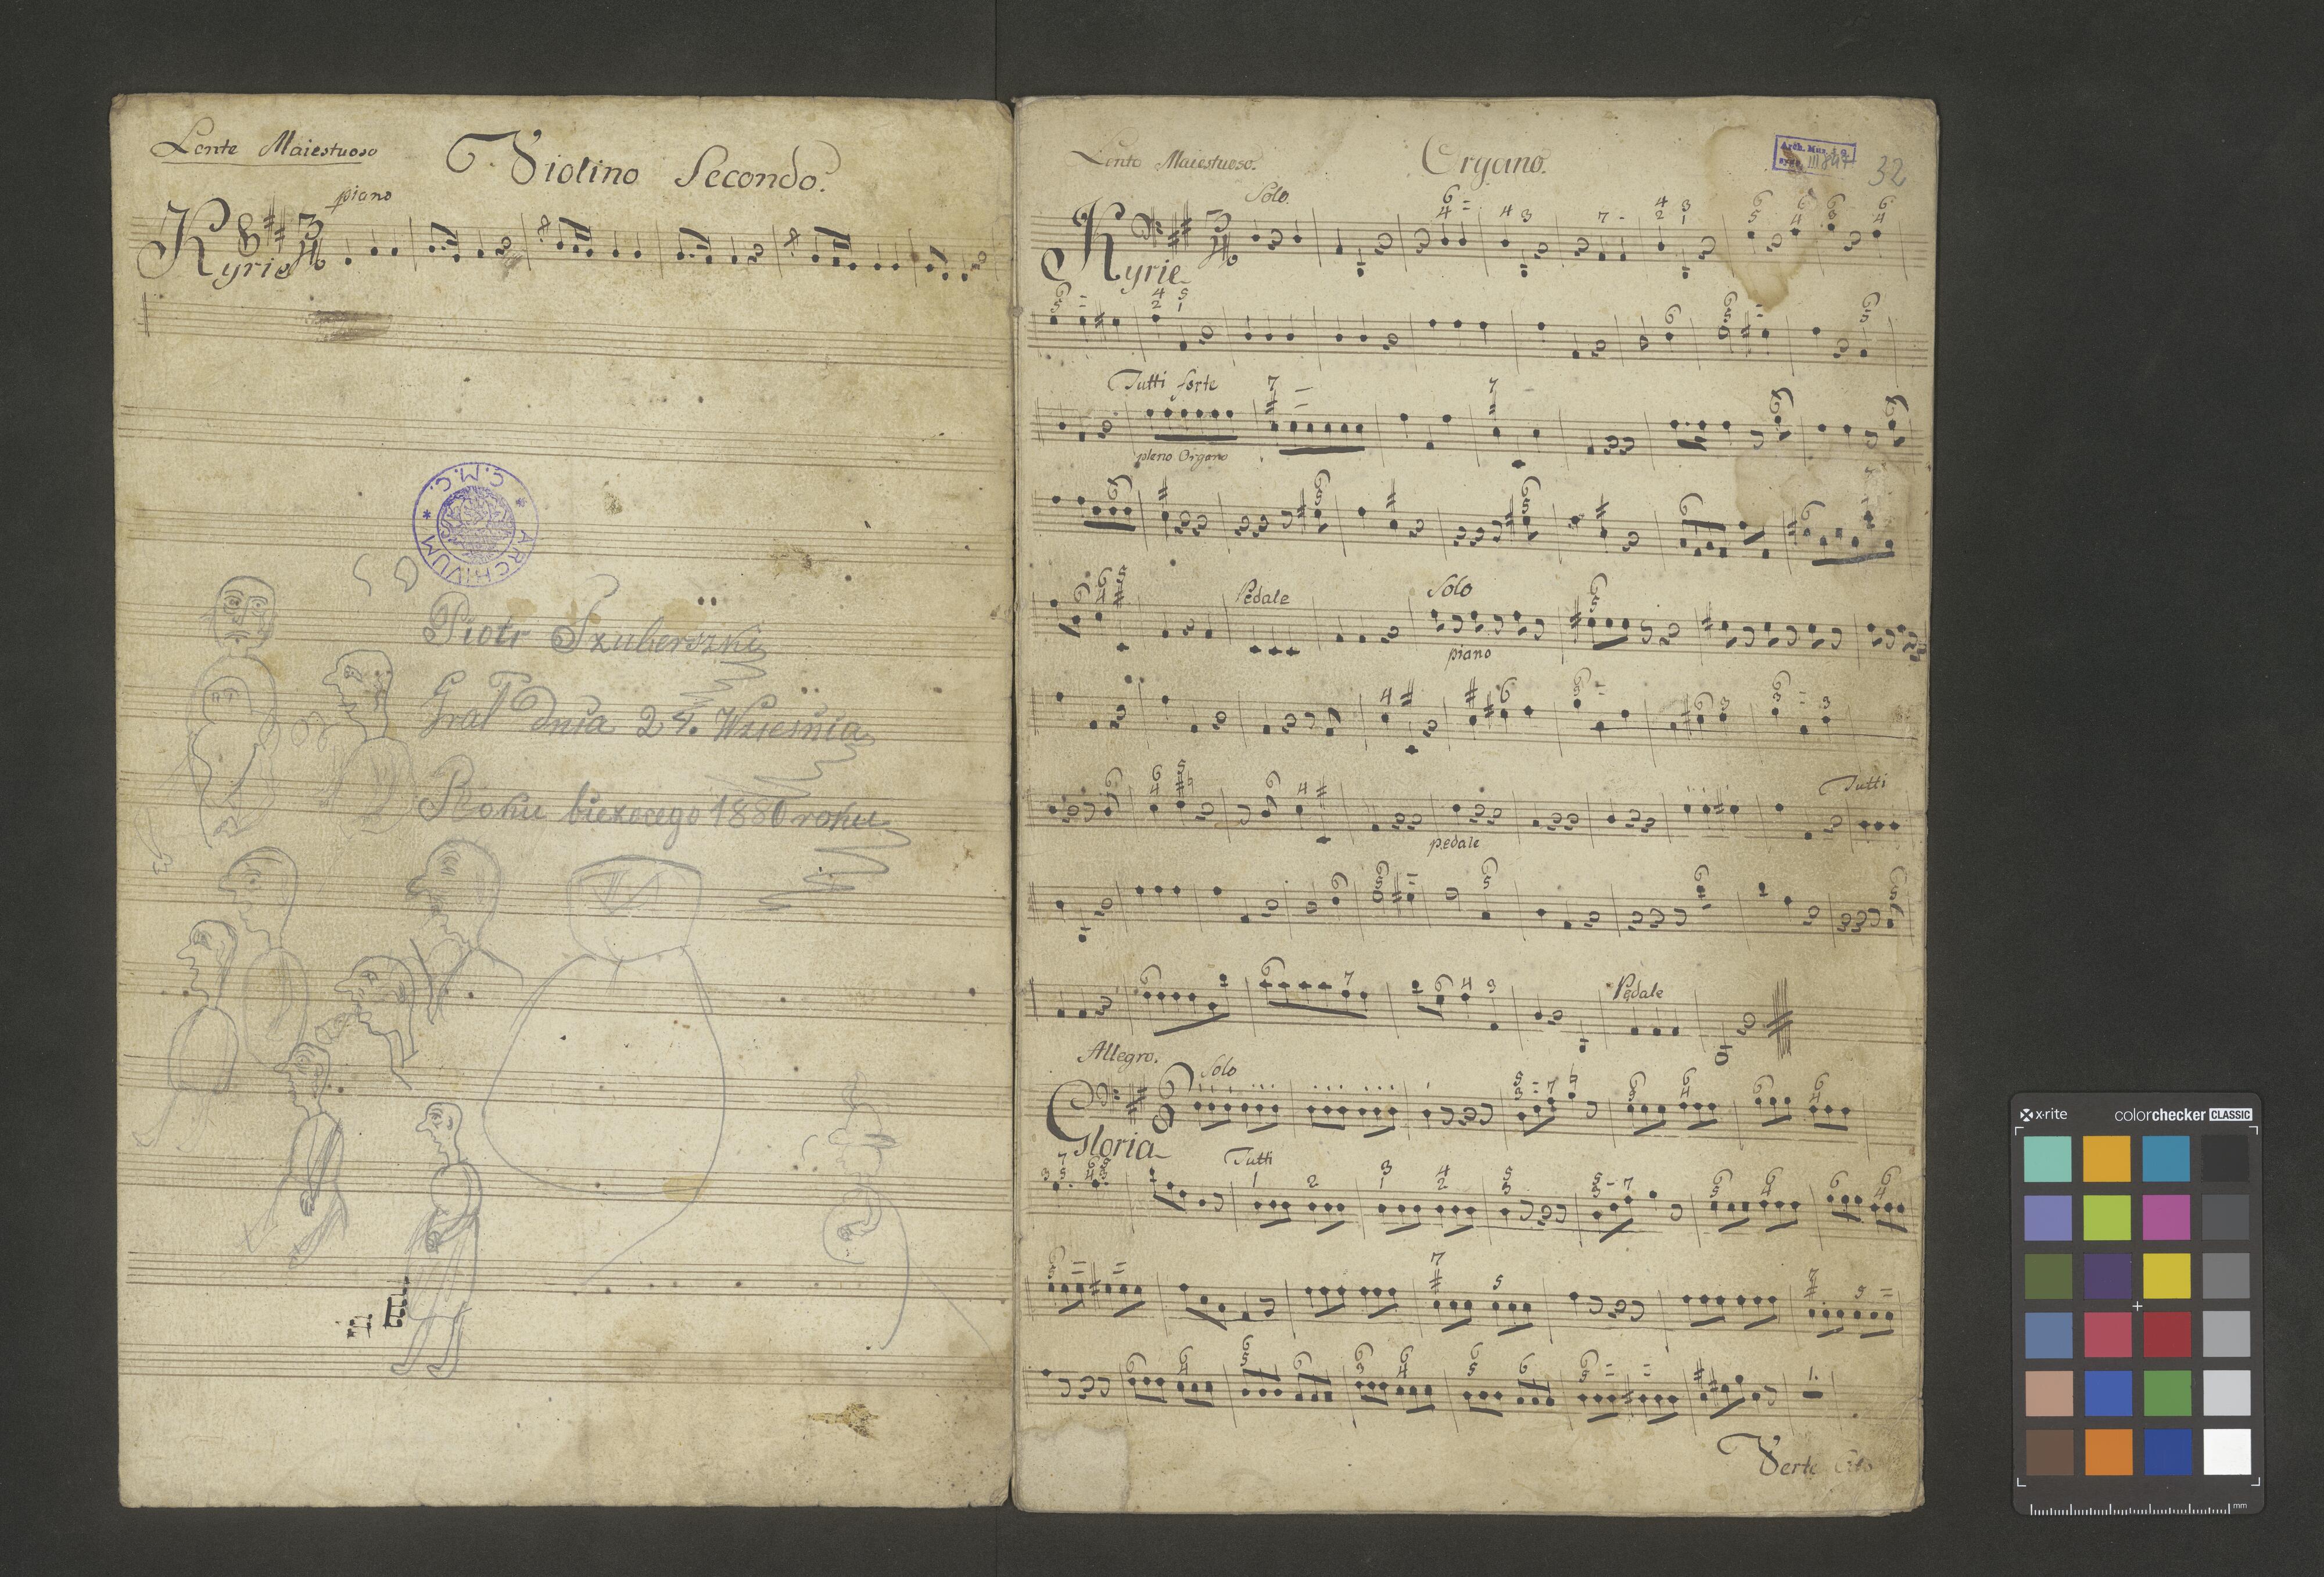 Lente Maiestuoso
Violino Secondo.
piano
Kyrie
ARCHIVUM C.M.C.
Piotr Szuberszki
Grał Dnia 24. Wrieśnia
Roku bieżocego 1880 roku
Lento Maiestuoso.
Organo.
Arch. Muz. J. G.
III 897
32
Solo.
Kyrie
Tutti forte
pleno Organo
Pedale
Solo
piano
Tutti
pedale
Pedale
Allegro.
Solo
Gloria
Tutti
Verte cito